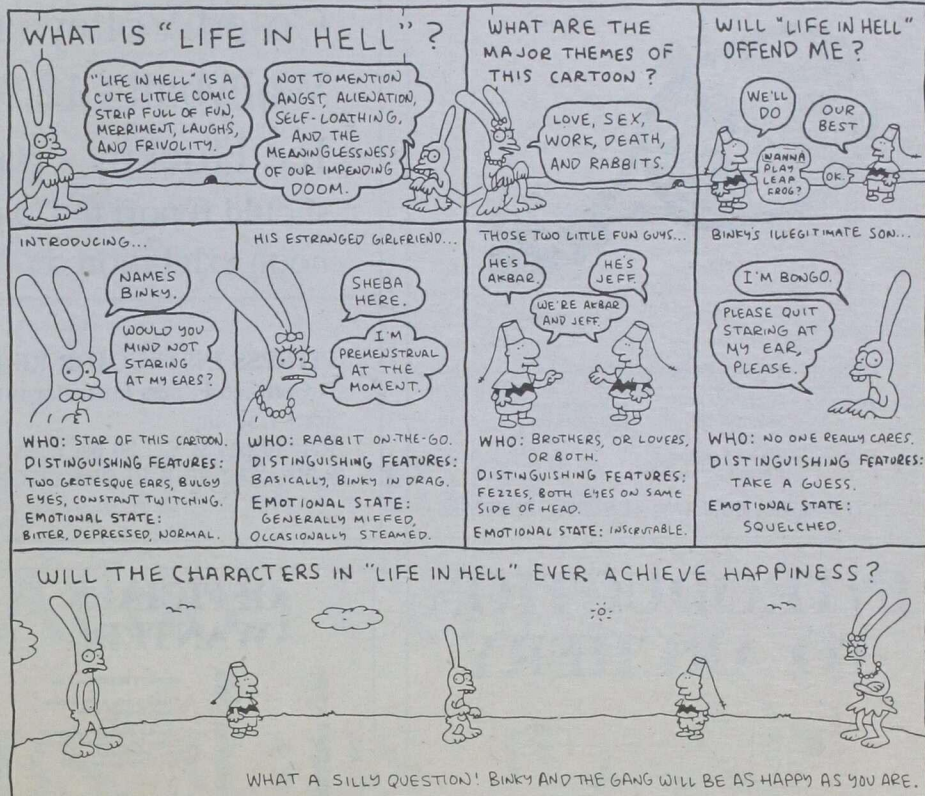 WHAT IS "LIFE IN HELL"?
"LIFE IN HELL" IS A
CUTE LITTLE COMIC
STRIP FULL OF FUN,
MERRIMENT, LAUGHS,
AND FRIVOLITY.
NOT TO MENTION
ANGST, ALIENATION,
SELF-LOATHING,
AND THE
MEANINGLESSNESS
OF OUR IMPENDING
DOOM.
WHAT ARE THE
MAJOR THEMES OF
THIS CARTOON?
LOVE, SEX,
WORK, DEATH,
AND RABBITS.
WILL "LIFE IN HELL"
OFFEND ME?
WE'LL
DO
OUR
BEST
WANNA
PLAY
LEAP
FROG?
OK.
INTRODUCING...
NAME'S
BINKY.
WOULD YOU
MIND NOT
STARING
AT MY EARS?
WHO: STAR OF THIS CARTOON.
DISTINGUISHING FEATURES:
TWO GROTESQUE EARS, BULGY
EYES, CONSTANT TWITCHING.
EMOTIONAL STATE:
BITTER, DEPRESSED, NORMAL.
HIS ESTRANGED GIRLFRIEND...
SHEBA
HERE.
I'M
PREMENSTRUAL
AT THE
MOMENT.
WHO: RABBIT ON-THE-GO.
DISTINGUISHING FEATURES:
BASICALLY, BINKY IN DRAG.
EMOTIONAL STATE:
GENERALLY MIFFED,
OCCASIONALLY STEAMED.
THOSE TWO LITTLE FUN GUYS...
HE'S
AKBAR.
HE'S
JEFF.
WE'RE AKBAR
AND JEFF.
WHO: BROTHERS, OR LOVERS,
OR BOTH.
DISTINGUISHING FEATURES:
FEZZES, BOTH EYES ON SAME
SIDE OF HEAD.
EMOTIONAL STATE: INSCRUTABLE.
BINKY'S ILLEGITIMATE SON...
I'M BONGO.
PLEASE QUIT
STARING AT
MY EAR,
PLEASE.
WHO: NO ONE REALLY CARES.
DISTINGUISHING FEATURES:
TAKE A GUESS.
EMOTIONAL STATE:
SQUELCHED.
WILL THE CHARACTERS IN "LIFE IN HELL" EVER ACHIEVE HAPPINESS?
WHAT A SILLY QUESTION! BINKY AND THE GANG WILL BE AS HAPPY AS YOU ARE.